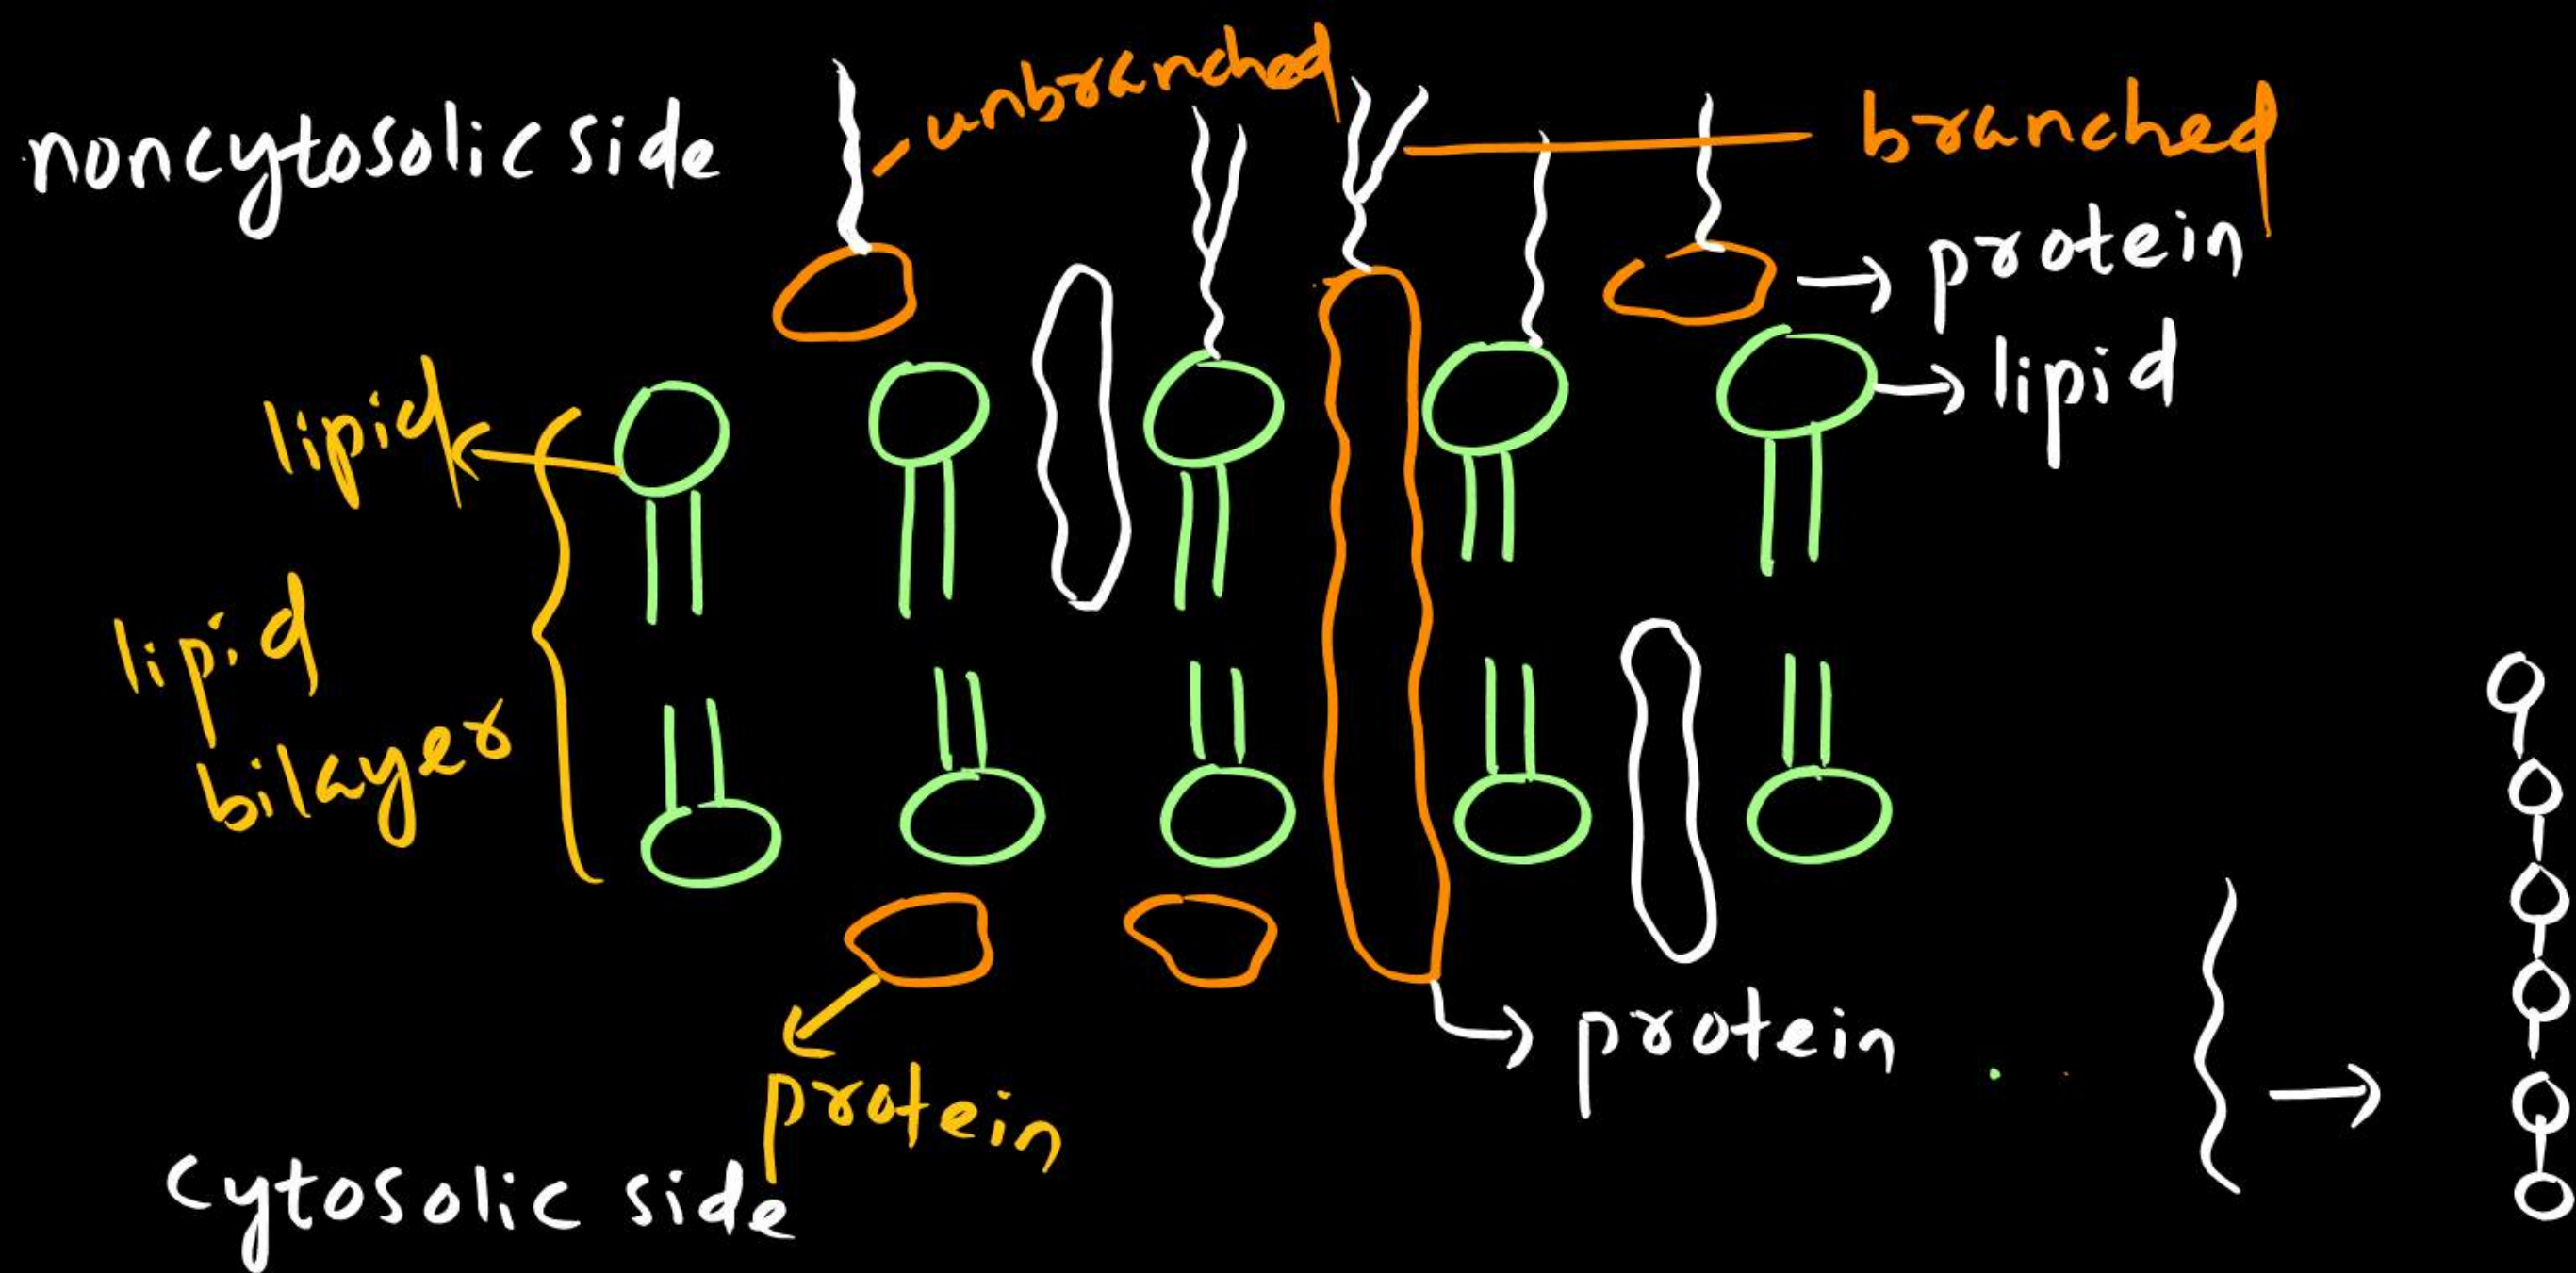 noncytosolic side
unbranched
branched
protein
lipid
lipid
lipid
bilayer
protein
protein
cytosolic side